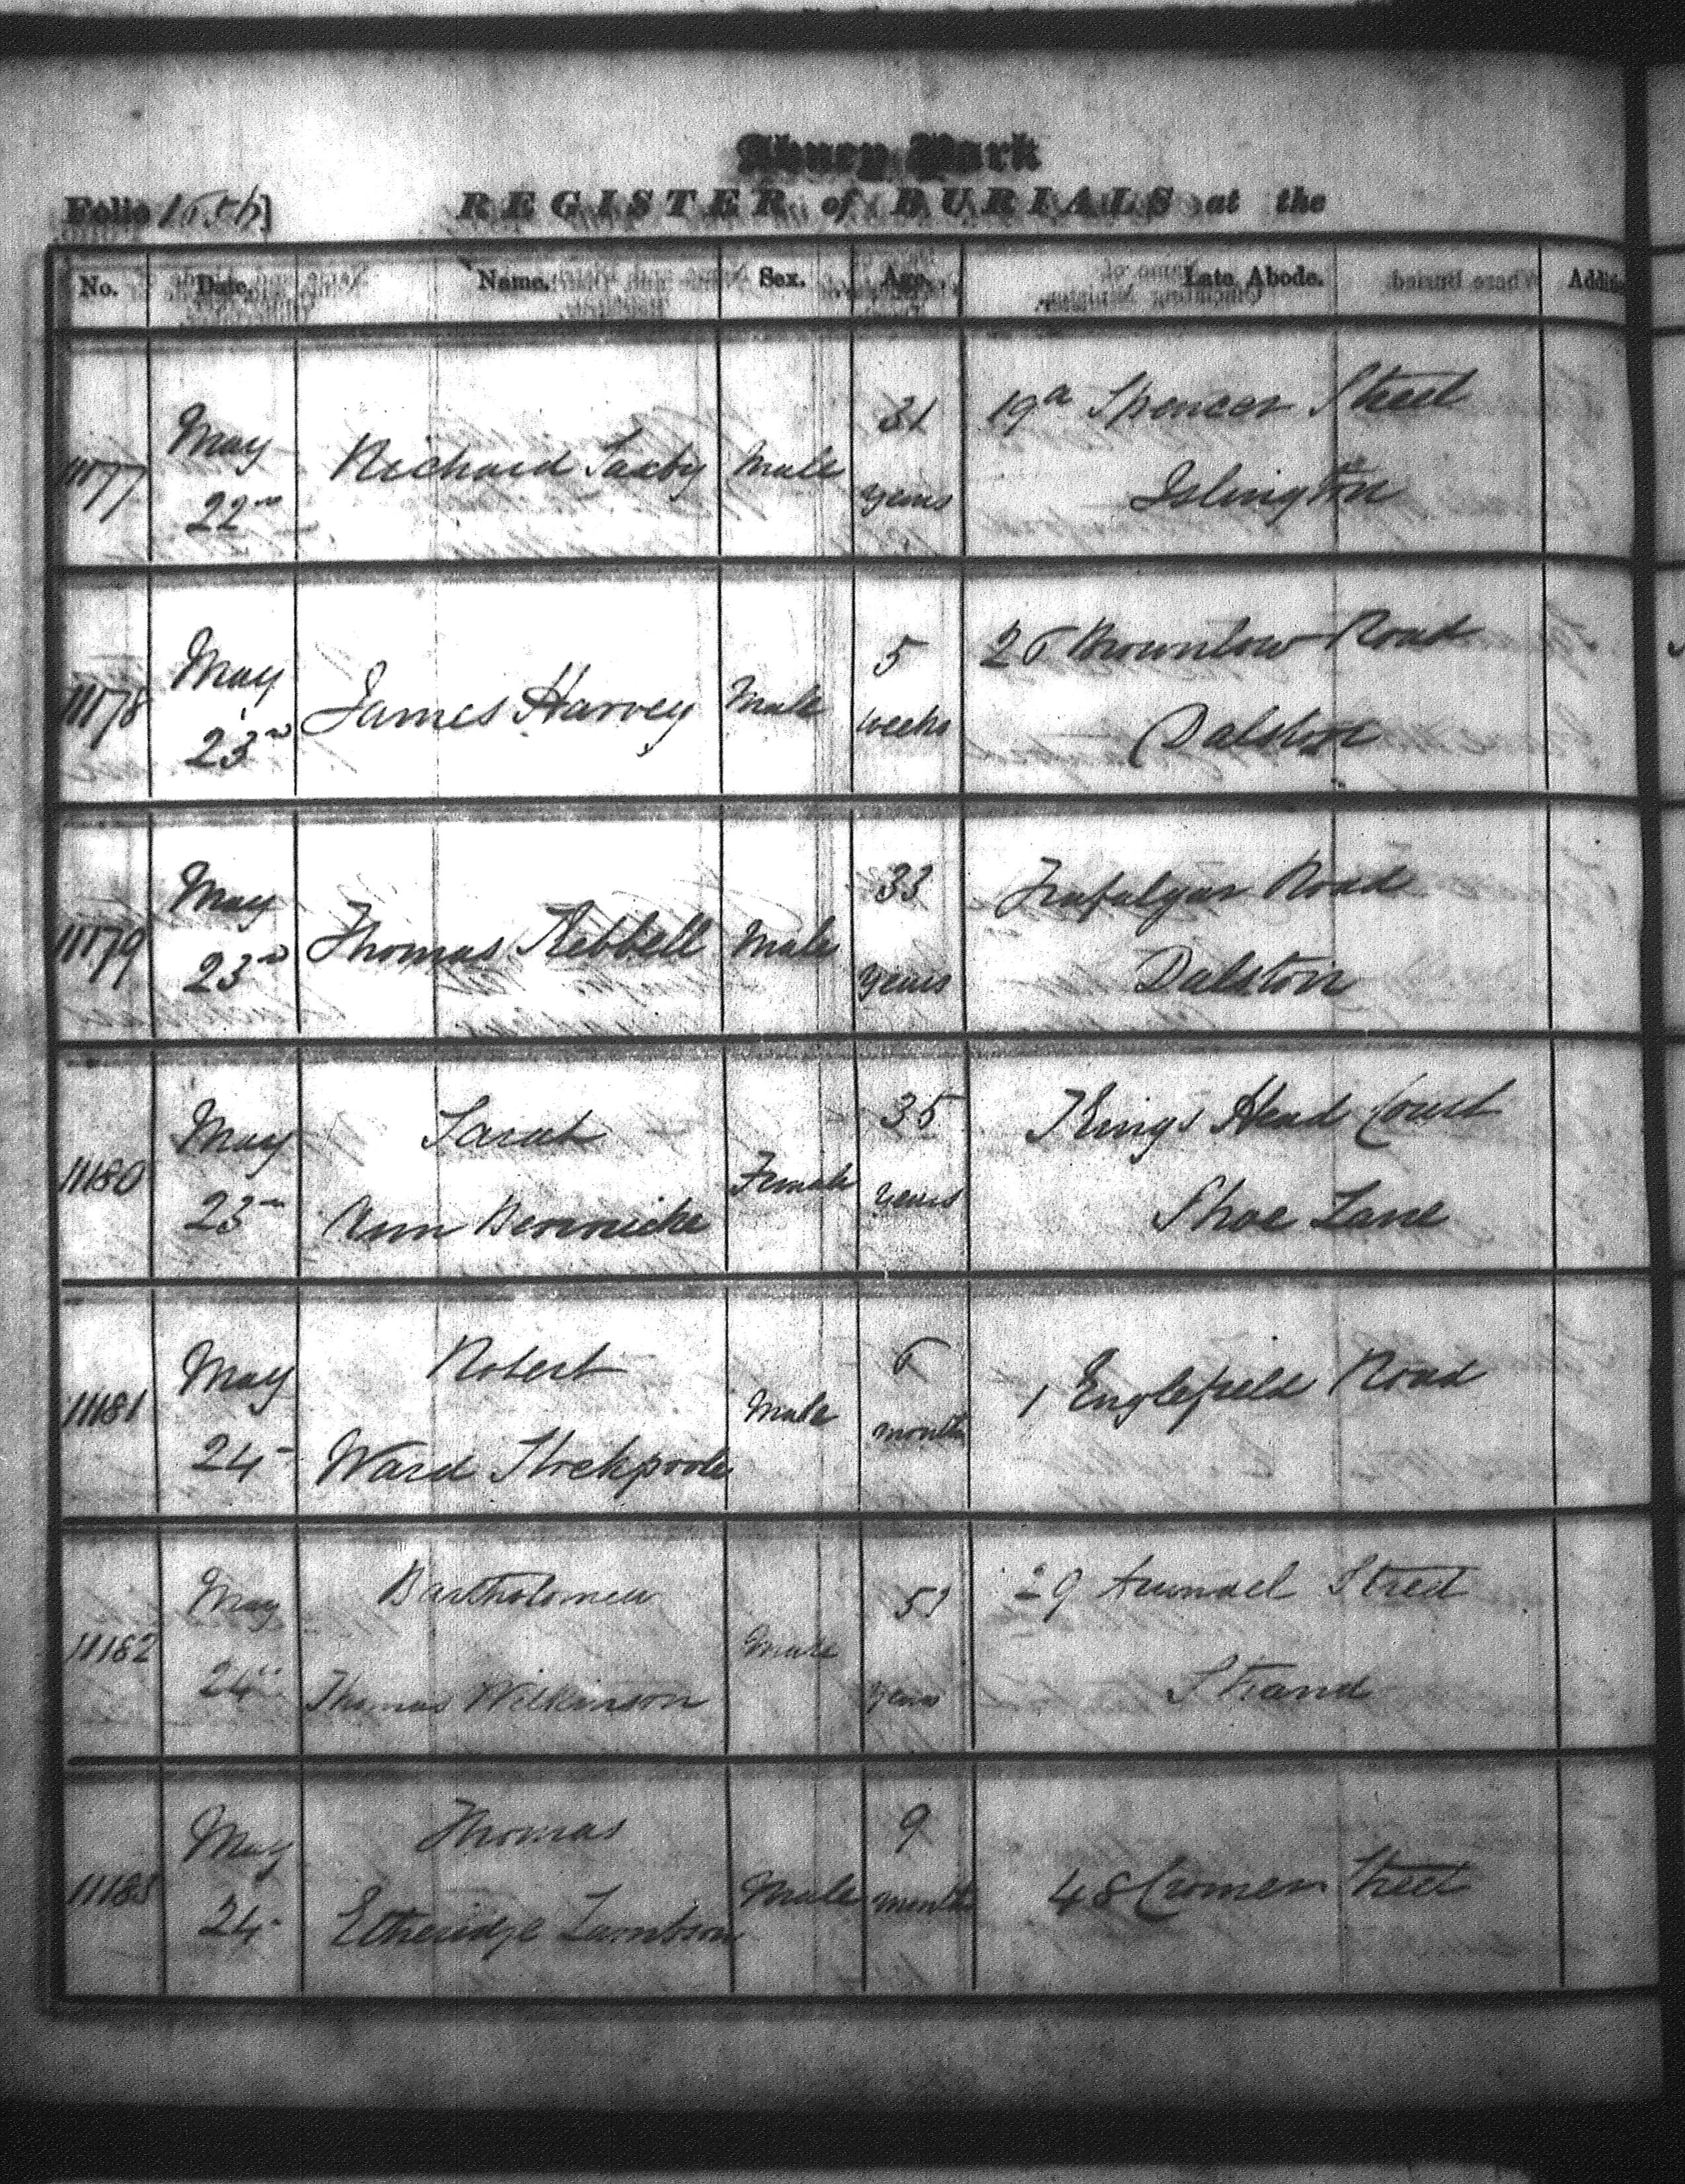 Abney Park
Folio
REGISTER of BURIALS at the
No. Date. Name. Sex. Age. Late Abode.
11177 May 22nd Richard Saxby Male 31 years 19a Spencer Street
Islington
11178 May 23rd James Harvey Male 5 weeks 26 Brownlow Road
Dalston
11179 May 23rd Thomas Kebbell Male 33 years Trafalgar Road
Dalston
11180 May 23 Sarah Female 35 years Kings Head Court
Ann Shoe Lane
11181 May 24 Robert Male 6 months 1 Englefield Road
Ward Stockpoole
11182 May 24 Bartholomew Male 51 years 29 Arundel Street
Thomas Wilkinson Strand
11183 May 24 Thomas Male 9 months 48 Cromer Street
Etheridge Lambson